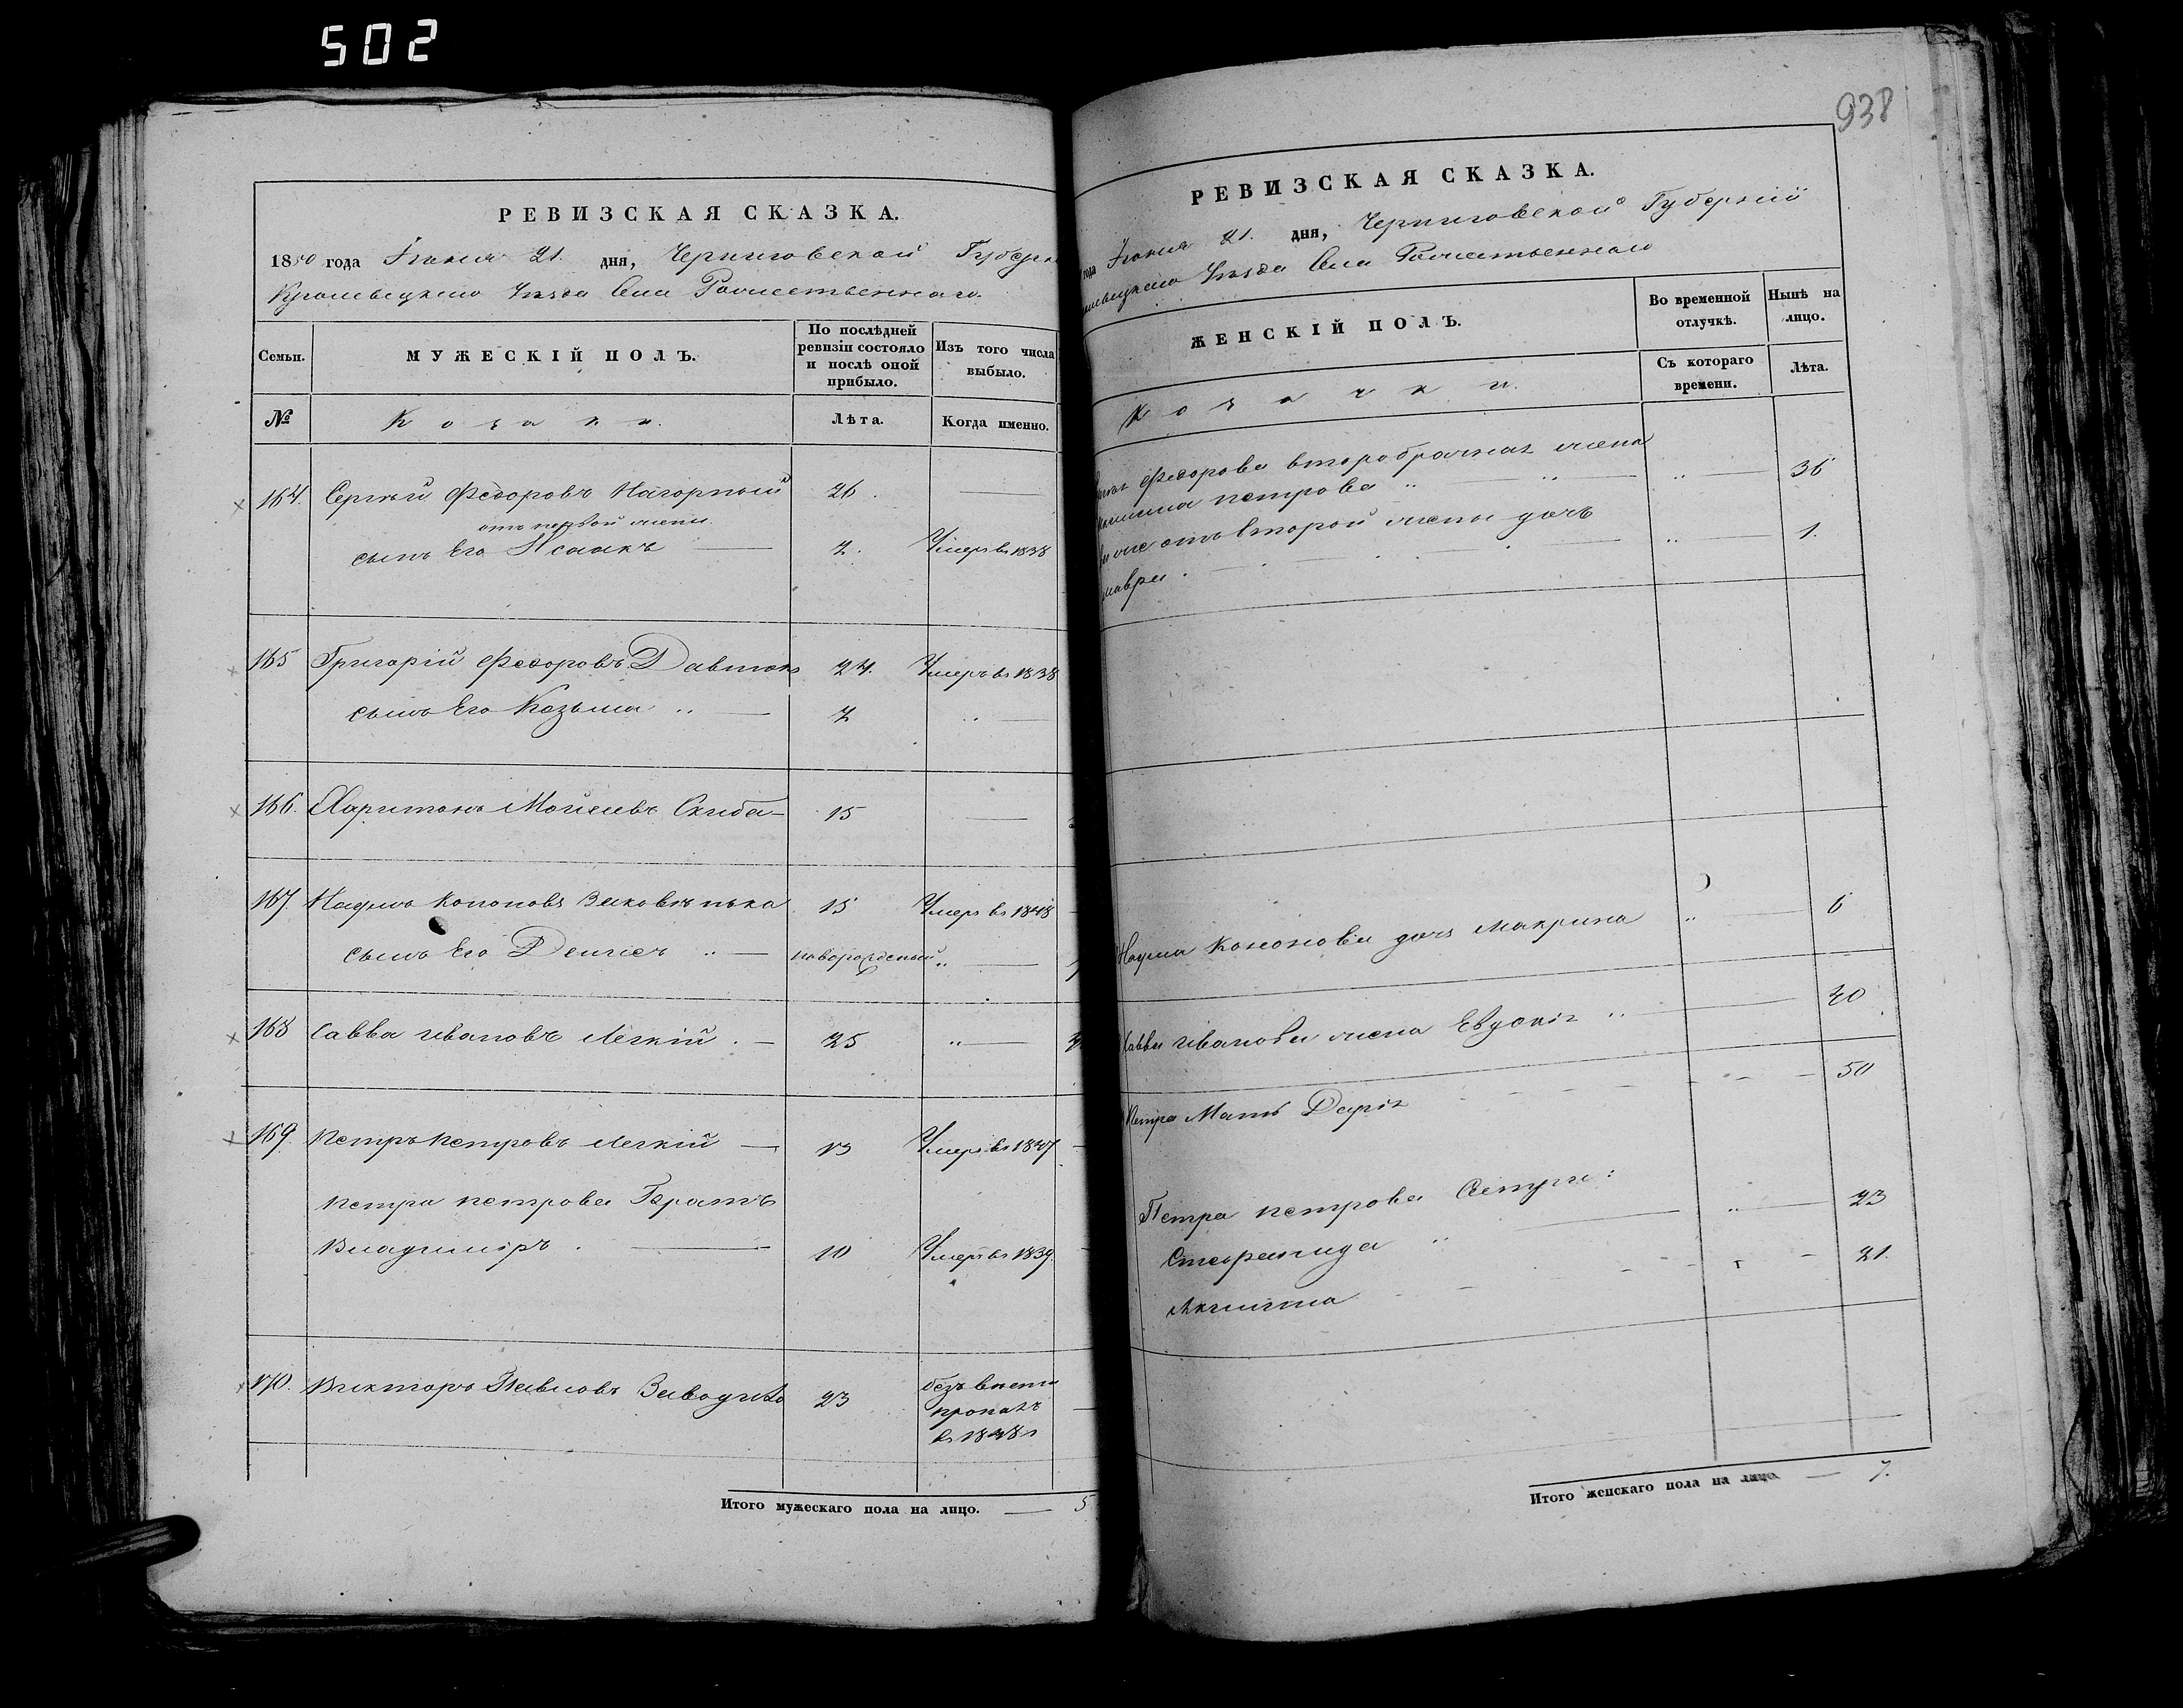 502
РЕВИЗСКАЯ СКАЗКА.
1850 года Іюня 21. дня, Черниговской Губерн
Кролевецкаго Уѣзда Села Рожественнаго.
Семьи.
МУЖЕСКІЙ ПОЛЪ.
По послѣдней ревизіи состояло и послѣ оной прибыло.
Изъ того числа выбыло.
№
Козаки.
Лѣта.
Когда именно.
164. Сергѣй Федоровъ Нагорный 26.
отъ первой жены
сынъ Его Исаакъ 7. Умеръ въ 1838
165 Григорій Федоровъ 24. Умеръ въ 1838
сынъ Его Козьма „ 7 „
166. Харитонъ Мойсеевъ Скиба 15
167. Наумъ Кононовъ 15 Умеръ въ 1848
сынъ Его „ новорожденный „
168 Савва Ивановъ Легкій. 25 „
169. Петръ Петровъ Легкій 13 Умеръ въ 1847
Петра Петрова Братъ
Владиміръ. 10 Умеръ въ 1839.
170. Викторъ Павловъ 23 безъ вѣсти
пропалъ
въ 1848
Итого мужескаго пола на лицо. 5
938
РЕВИЗСКАЯ СКАЗКА.
года Іюня 21. дня, Черниговской Губерніи
Уѣзда Села Рожественнаго
ЖЕНСКІЙ ПОЛЪ.
Во временной отлучкѣ.
Нынѣ на лицо.
Козачки.
Съ котораго времени.
Лѣта.
Федорова второбрачная жена
Петрова „ „ „ 36
отъ второй жены дочь „ 1.
Наума Кононова дочь Макрина „ 6
Саввы Иванова жена Евдокія „ 40
Петра Мать Дарія 50
Петра Петрова Сестры:
Стефанида „ „ 23
Акилина 21.
Итого женскаго пола на лицо 7.